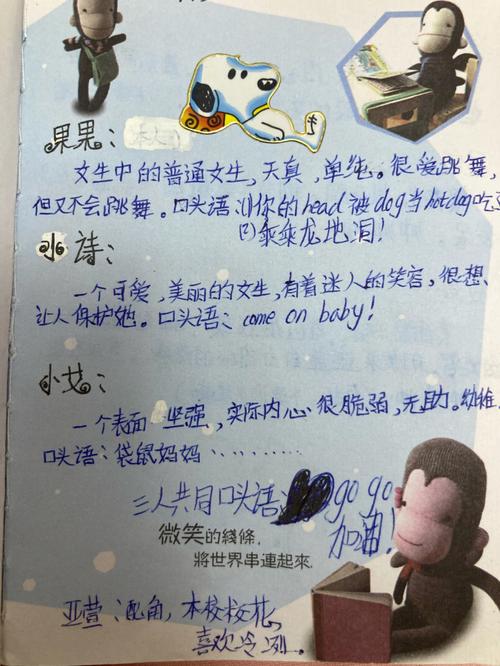 果果：
女生中的普通女生，天真，单纯。很爱跳舞，
但又不会跳舞。口头语：(1)你的head被dog当hotdog吃
(2)乖乖龙地泪！
水诗：
一个可爱，美丽的女生，有着迷人的笑容，很想
让人保护她。口头语：come on baby！
小艾：
一个表面一坚强，实际内心很脆弱，无助。幼稚
口头语：袋鼠妈妈………
三人共同口头语：go go
加油！
微笑的綫條，
將世界串連起來.
亚萱：配角，本校校花，
喜欢冷冽。